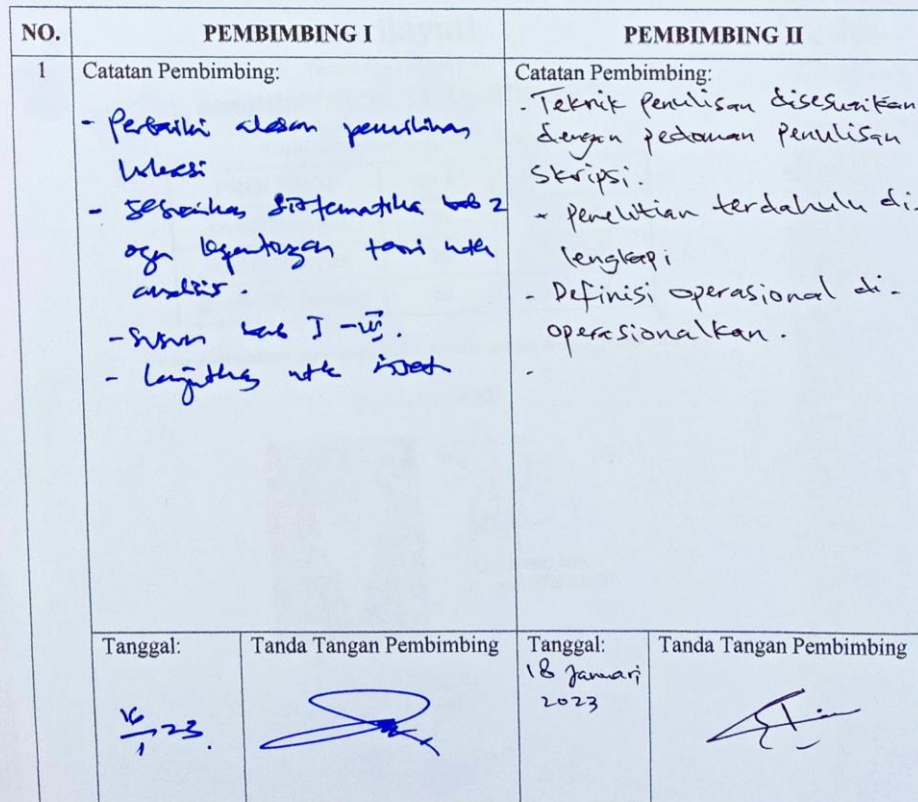 NO.
PEMBIMBING I
PEMBIMBING II
1
Catatan Pembimbing:
- Perbaiki alasan pemilihan
lokasi
- Sesuaikan Sistematika bab 2
agr kepentingan teori utk
analisis.
- Susun bab I -
- Lanjutkan utk riset
Catatan Pembimbing:
- Teknik Penulisan disesuaikan
dengan pedoman penulisan
Skripsi.
- Penelitian terdahulu di-
lengkapi
- Definisi operasional di-
operasionalkan.
-
Tanggal:
16/1 23.
Tanda Tangan Pembimbing
Tanggal:
18 Januari
2023
Tanda Tangan Pembimbing